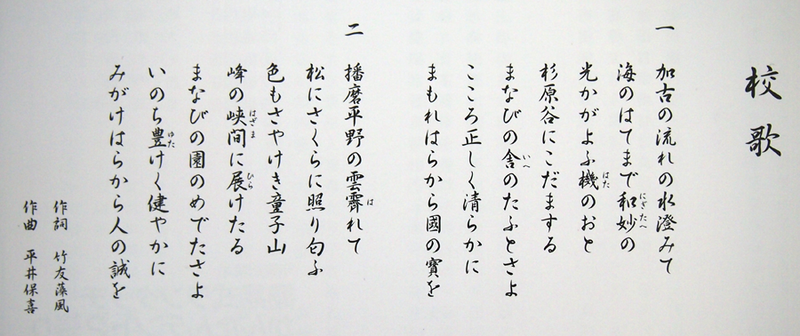 校歌
一 加古の流れの水澄みて
海のはてまで和妙の
光かがよふ機のおと
杉原谷にこだまする
まなびの舎のたふとさよ
こころ正しく清らかに
まもれはらから國の寶を
二 播磨平野の雲霽れて
松にさくらに照り匂ふ
色もさやけき童子山
峰の峡間に展けたる
まなびの園のめでたさよ
いのち豊けく健やかに
みがけはらから人の誠を
作詞 竹友藻風
作曲 平井保喜